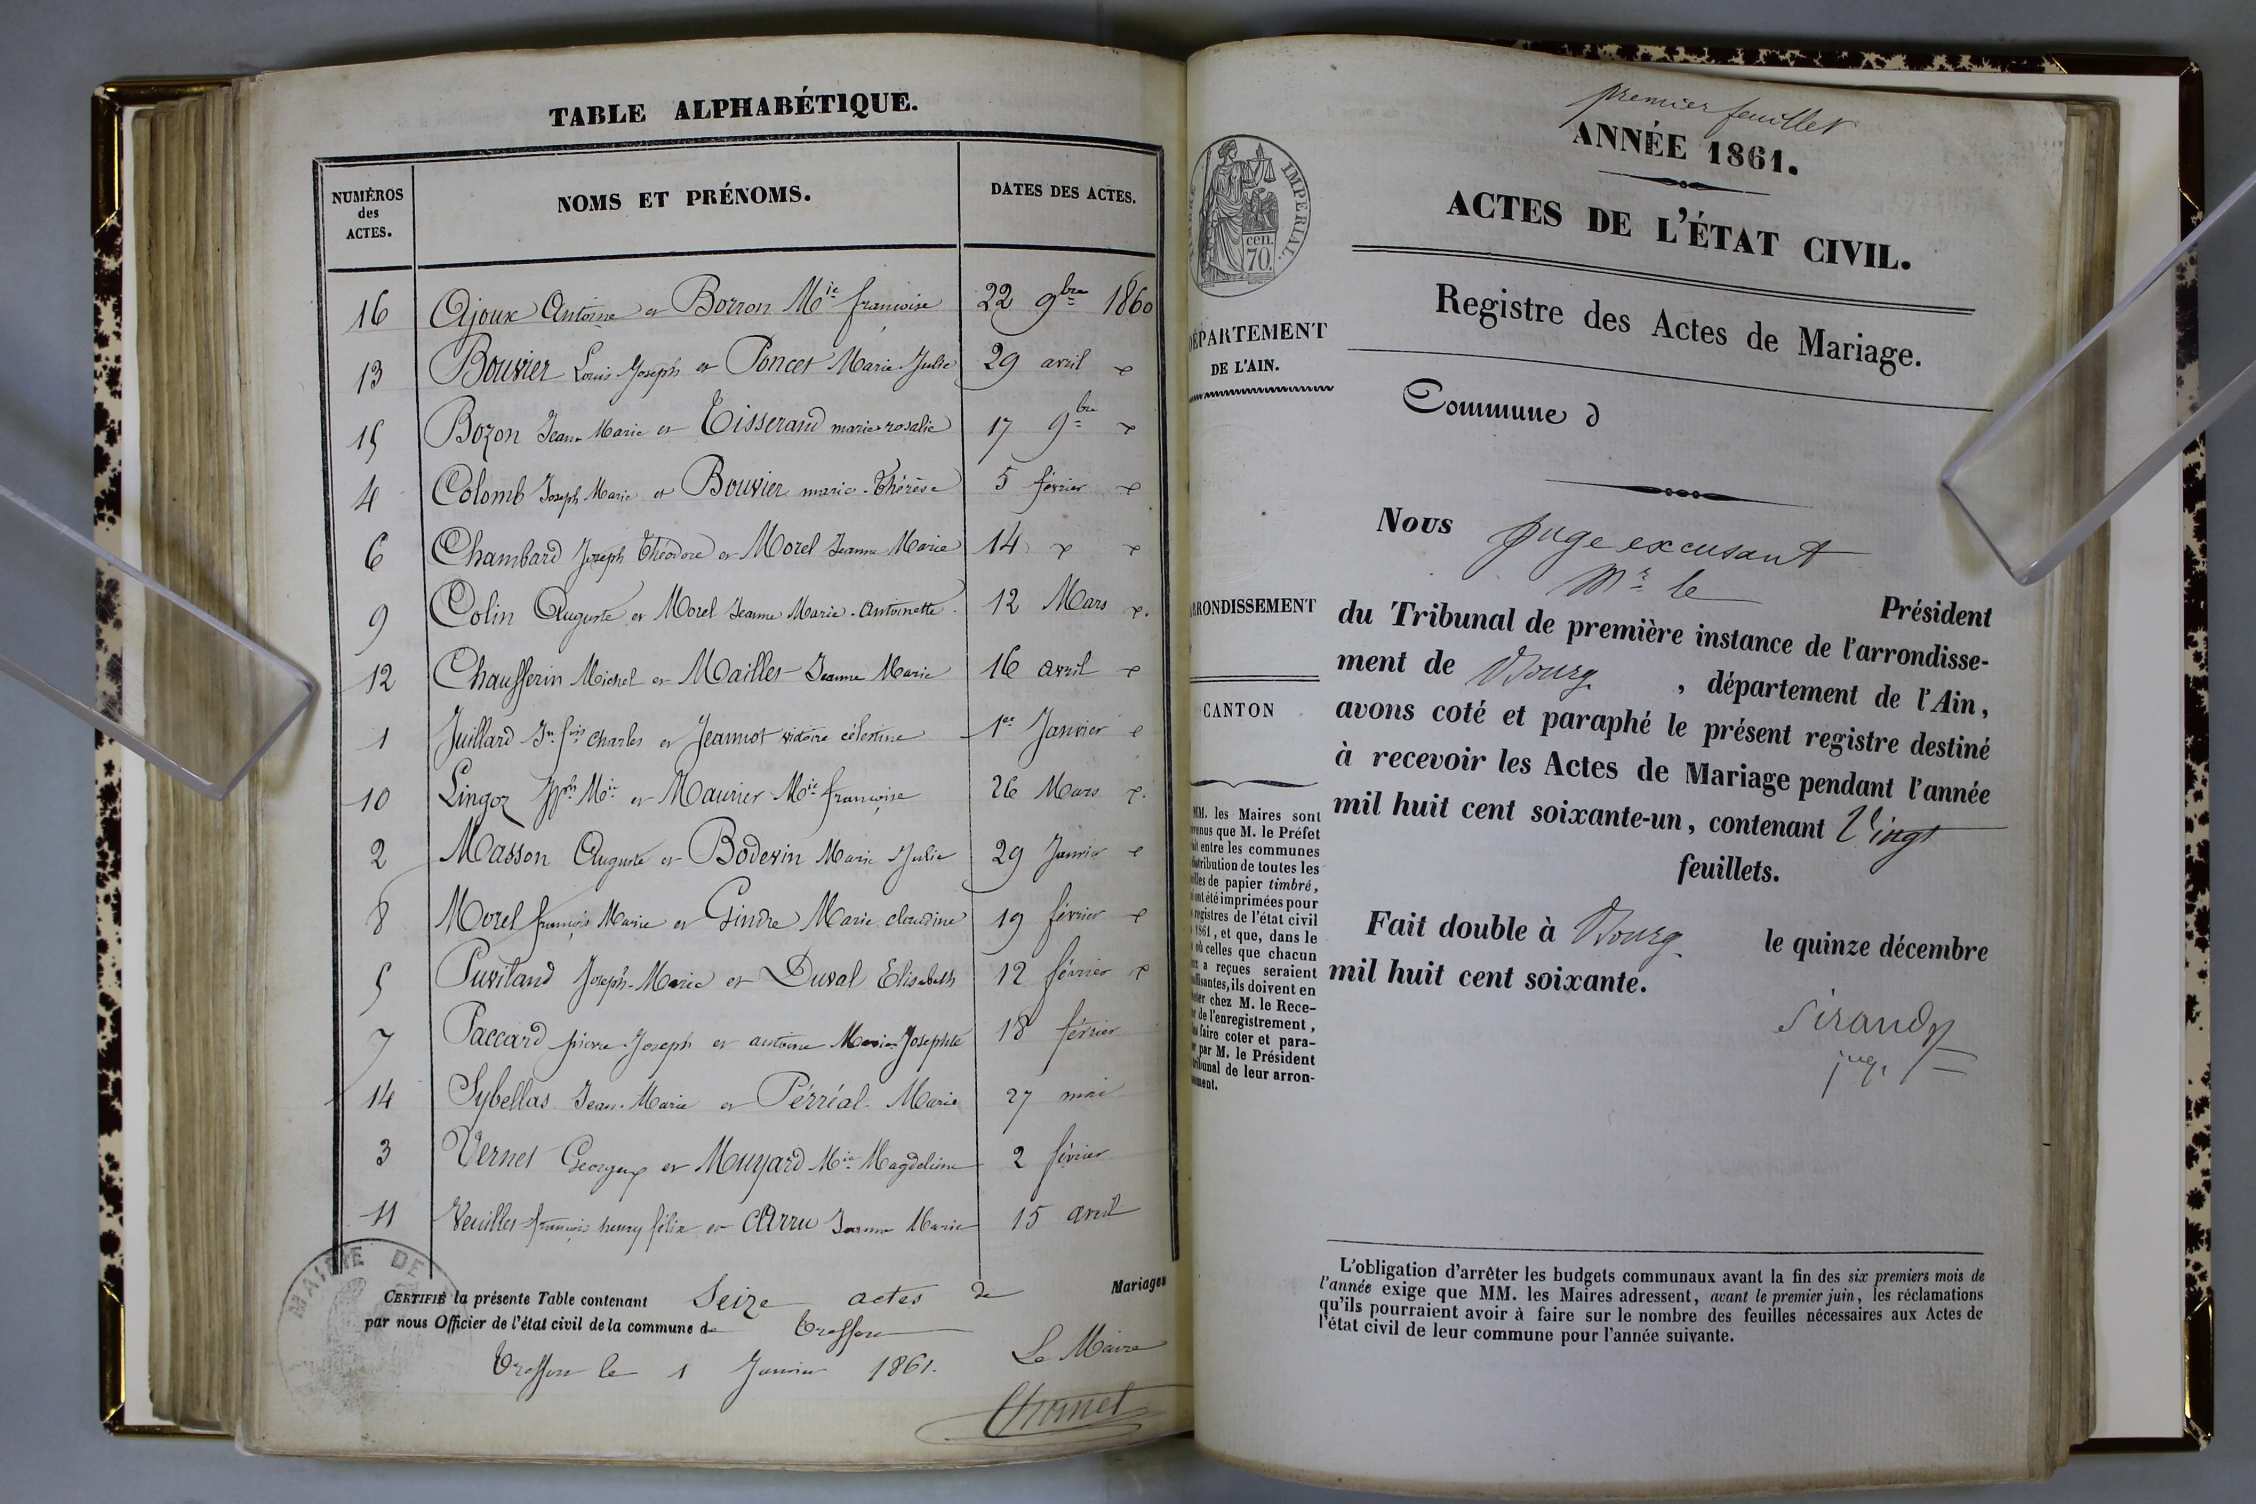 TABLE ALPHABÉTIQUE.
NUMÉROS des ACTES. NOMS ET PRÉNOMS. DATES DES ACTES.
16 Ajoux Antoine et Borron Mie françoise 22 9bre 1860
13 Bouvier Louis Joseph et Poncet Marie Julie 29 avril
15 Bozon Jean Marie et Tisserand marie rosalie 17 9bre
4 Colomb Joseph Marie et Bouvier marie-Thérèse 5 février
6 Chambard Joseph Théodore et Morel Jeanne Marie 14
9 Colin Auguste et Morel Jeanne Marie-Antoinette 12 Mars
12 Chausserin Michel et Mailles Jeanne Marie 16 avril
1 Juillard Jn fois Charles et Jeannot victoire célestine 1er Janvier
10 Lingoz Jph Mie et Maurier Mie françoise 26 Mars
2 Masson Auguste et Bodevin Marie Julie 29 Janvier
8 Morel françois Marie et Gindre Marie claudine 19 février
5 Puvilland Joseph-Marie et Duval Elisabeth 12 février
7 Paccard pierre Joseph et antoine Marie Josephte 18 février
14 Sybellas Jean-Marie et Pérréal Marie 27 mai
3 Vernet Georges et Muyard Mie Magdeleine 2 février
11 Veuilles françois henry félix et Jeanne Marie 15 avril
MAIRIE DE
CERTIFIÉ la présente Table contenant Seize actes de Mariages
par nous Officier de l'état civil de la commune de Treffort
Treffort le 1 Janvier 1861.
Le Maire
Chomel
premier feuillet
ANNÉE 1861.
ACTES DE L'ÉTAT CIVIL.
IMPERIAL.
cen. 70.
Registre des Actes de Mariage.
DÉPARTEMENT
DE L'AIN.
Commune d
Nous Juge excusant
Mr le Président
ARRONDISSEMENT
du Tribunal de première instance de l'arrondisse-
ment de Bourg, département de l'Ain,
CANTON
avons coté et paraphé le présent registre destiné
à recevoir les Actes de Mariage pendant l'année
mil huit cent soixante-un, contenant Vingt
feuillets.
Fait double à Bourg le quinze décembre
mil huit cent soixante.
Sirand
juge
MM. les Maires sont
que M. le Préfet
entre les communes
distribution de toutes les
de papier timbré,
ont été imprimées pour
registres de l'état civil
1861, et que, dans le
où celles que chacun
a reçues seraient
ils doivent en
chez M. le Rece-
de l'enregistrement,
faire coter et para-
par M. le Président
tribunal de leur arron-
L'obligation d'arrêter les budgets communaux avant la fin des six premiers mois de
l'année exige que MM. les Maires adressent, avant le premier juin, les réclamations
qu'ils pourraient avoir à faire sur le nombre des feuilles nécessaires aux Actes de
l'état civil de leur commune pour l'année suivante.